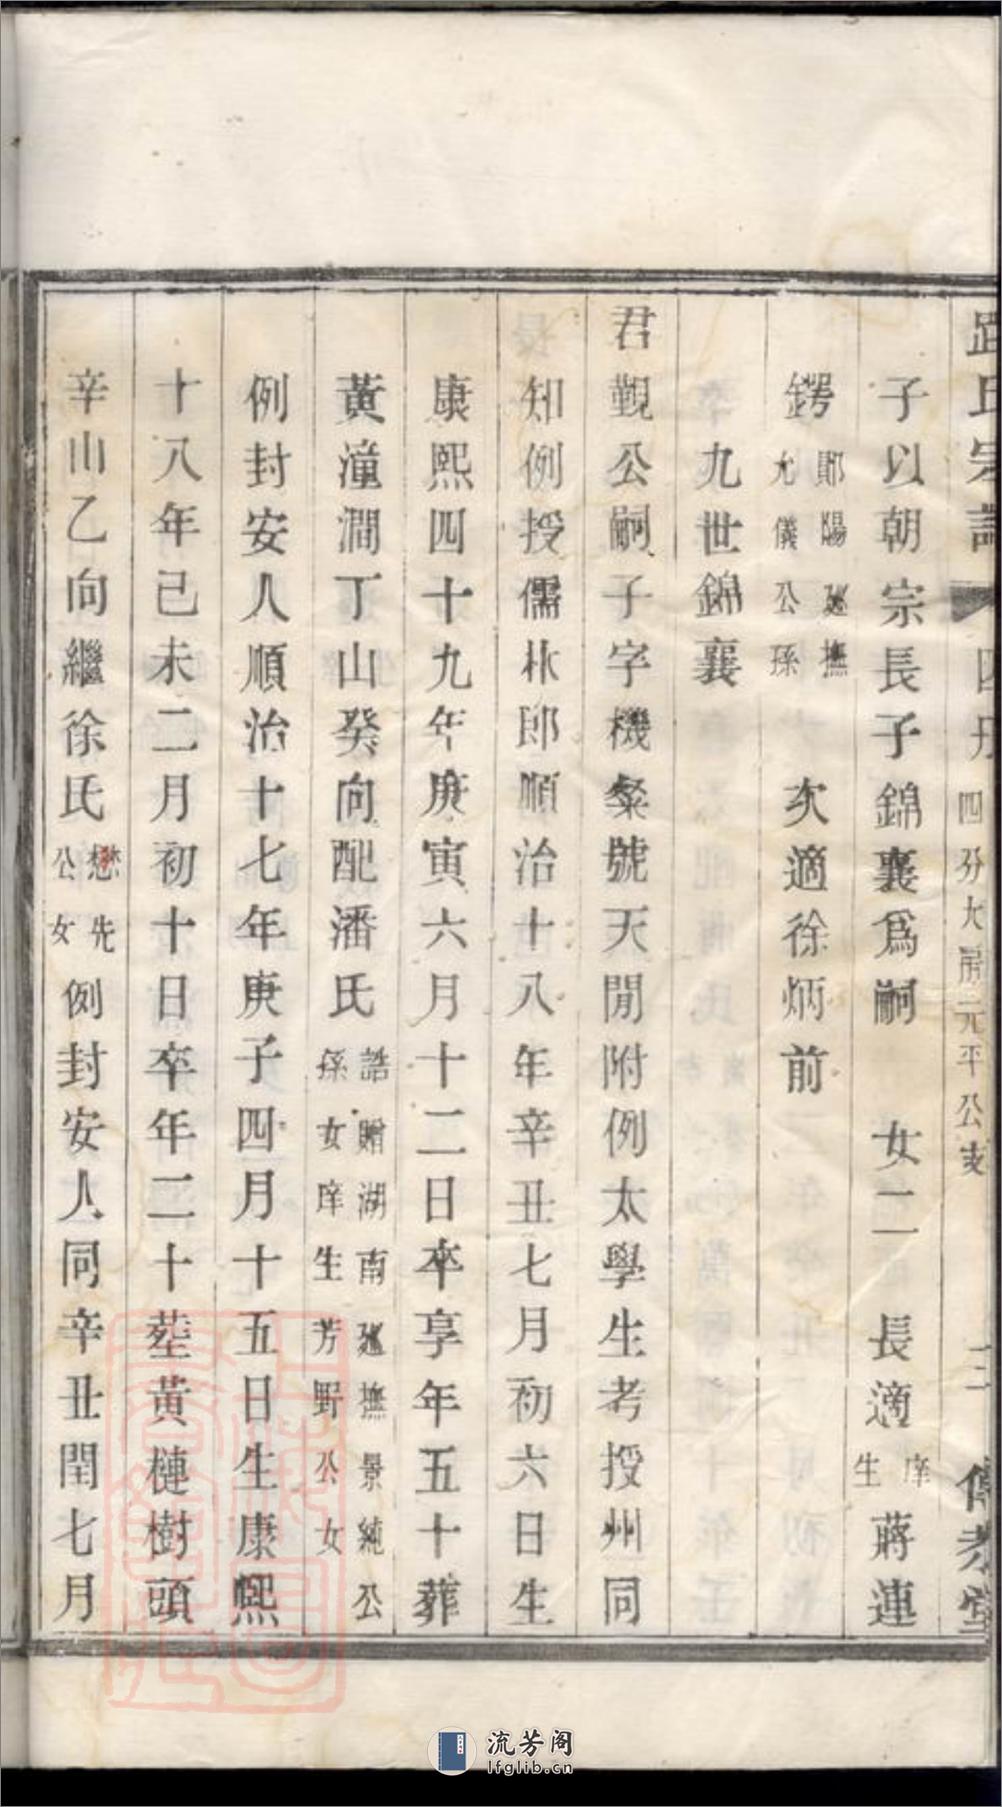 氏宗譜 四 四分大房元平公支 三 傳孝堂
子以朝宗長子錦襄爲嗣 女二 長適庠生蔣連
鍔鄖陽廵撫允儀公孫 次適徐炳前
九世錦襄
君觀公嗣子字機粲號天閒附例太學生考授州同
知例授儒林郎順治十八年辛丑七月初六日生
康熙四十九年庚寅六月十二日卒享年五十葬
黃潼澗丁山癸向配潘氏誥贈湖南廵撫景純公孫女庠生芳野公女
例封安人順治十七年庚子四月十五日生康熙
十八年己未二月初十日卒年二十塟黃槤樹頭
辛山乙向繼徐氏懋先公女例封安人同辛丑閏七月
流芳阁
lfglib.cn